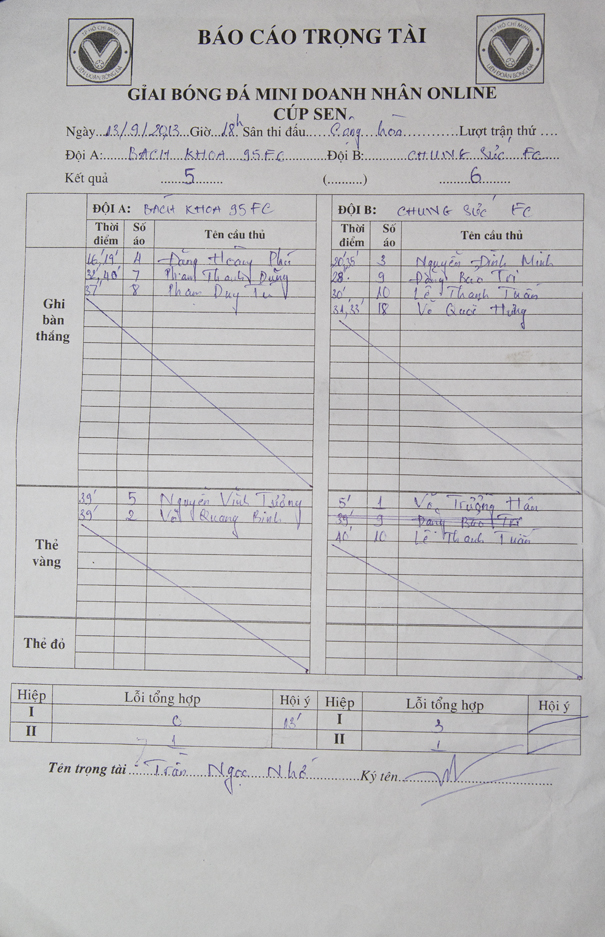 TP HỒ CHÍ MINH
LIÊN ĐOÀN BÓNG ĐÁ
BÁO CÁO TRỌNG TÀI
TP HỒ CHÍ MINH
LIÊN ĐOÀN BÓNG ĐÁ
GIẢI BÓNG ĐÁ MINI DOANH NHÂN ONLINE
CÚP SEN
Ngày 13/9/2013 Giờ 18h Sân thi đấu Cộng hòa Lượt trận thứ
Đội A: BÁCH KHOA 95 FC Đội B: CHUNG SỨC FC
Kết quả 5 (..........) 6
ĐỘI A: BÁCH KHOA 95 FC ĐỘI B: CHUNG SỨC FC
Thời điểm Số áo Tên cầu thủ Thời điểm Số áo Tên cầu thủ
Ghi bàn thắng
16', 19' 4 Đặng Hoàng Phú 3 Nguyễn Đình Minh
40' 7 Phan Thanh Dũng 28' 9 Đặng Bảo Trí
37' 8 Phạm Duy Tú 30' 10 Lê Thanh Tuấn
31', 33' 18 Võ Quốc Hưng
Thẻ vàng
39' 5 Nguyễn Vĩnh Tường 5' 1 Võ Trường Hân
39' 2 Võ Quang Bình 39' 9 Đặng Bảo Trí
40' 10 Lê Thanh Tuấn
Thẻ đỏ
Hiệp Lỗi tổng hợp Hội ý Hiệp Lỗi tổng hợp Hội ý
I 13' I 3
II 1 II 1
Tên trọng tài Trần Ngọc Nhớ Ký tên